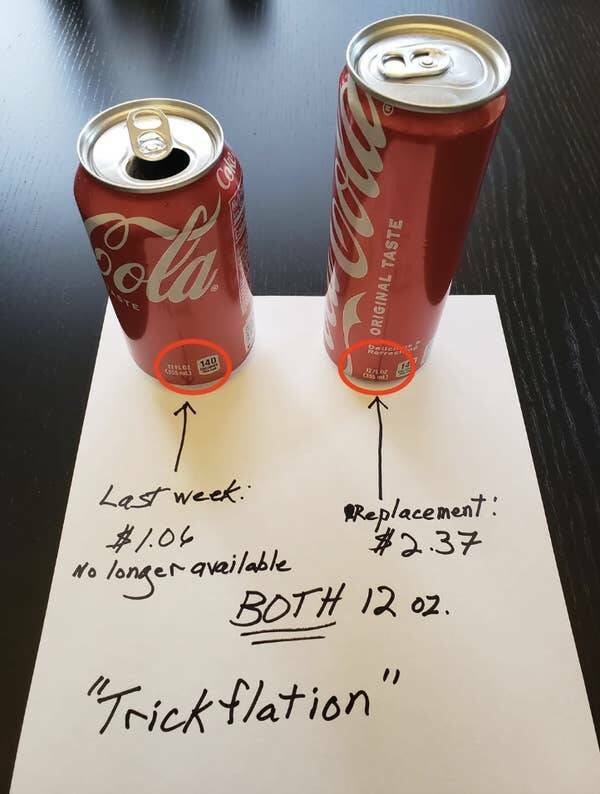 Coke
Cola
®
STE
12 FL OZ
(355 mL)
140
Cola
®
ORIGINAL TASTE
Delicious
Refreshing
12 FL OZ
(355 mL)
Last week:
$1.06
No longer available
Replacement:
$2.37
BOTH 12 oz.
"Trickflation"